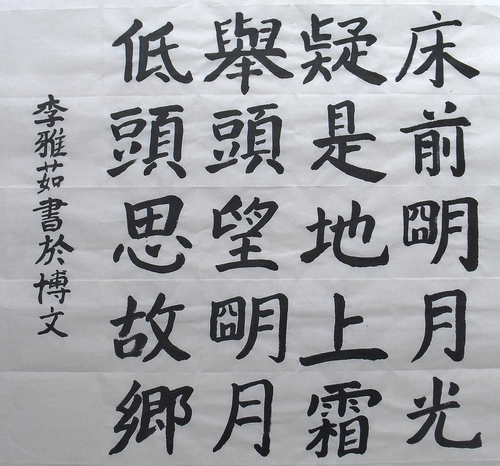 床前明月光
疑是地上霜
舉頭望明月
低頭思故鄉
李雅茹書於博文